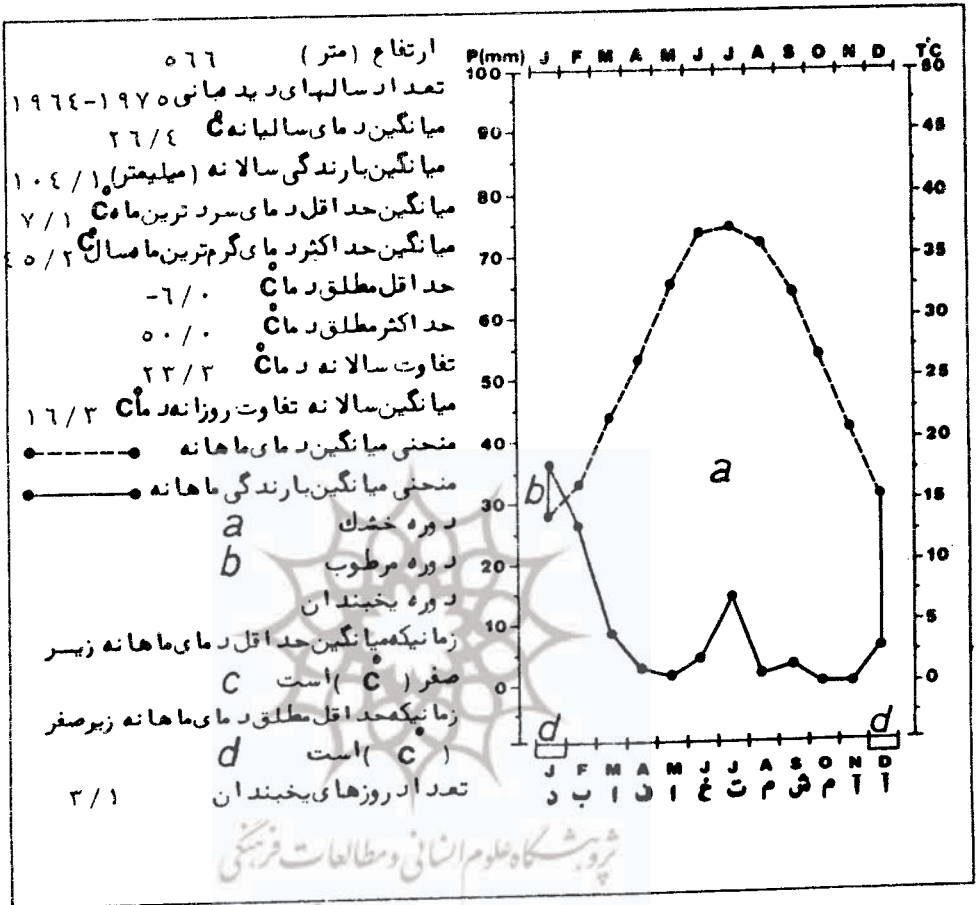 ارتفاع (متر) ٥٦٦
تعداد سالهای دیدبانی ١٩٦٤-١٩٧٥
میانگین دمای سالیانه C° ٢٦/٤
میانگین بارندگی سالانه (میلیمتر) ١٠٤/١
میانگین حداقل دمای سردترین ماه C° ٧/١
میانگین حداکثر دمای گرم‌ترین ماه سال C° ٤٥/٢
حداقل مطلق دما C° -٦/٠
حداکثر مطلق دما C° ٥٠/٠
تفاوت سالانه دما C° ٢٣/٣
میانگین سالانه تفاوت روزانه دما C° ١٦/٣
منحنی میانگین دمای ماهانه
منحنی میانگین بارندگی ماهانه
دوره خشک a
دوره مرطوب b
دوره یخبندان
زمانیکه میانگین حداقل دمای ماهانه زیر
صفر (C°) است C
زمانیکه حداقل مطلق دمای ماهانه زیر صفر
(C°) است d
تعداد روزهای یخبندان ٣/١
P(mm) J F M A M J J A S O N D T°C
100 50
90 45
80 40
70 35
60 30
50 25
40 20
30 15
20 10
10 5
0 0
a
b
d d
J F M A M J J A S O N D
د ب ا ف ا خ ت م ش م آ آ
پژوهشگاه علوم انسانی و مطالعات فرهنگی